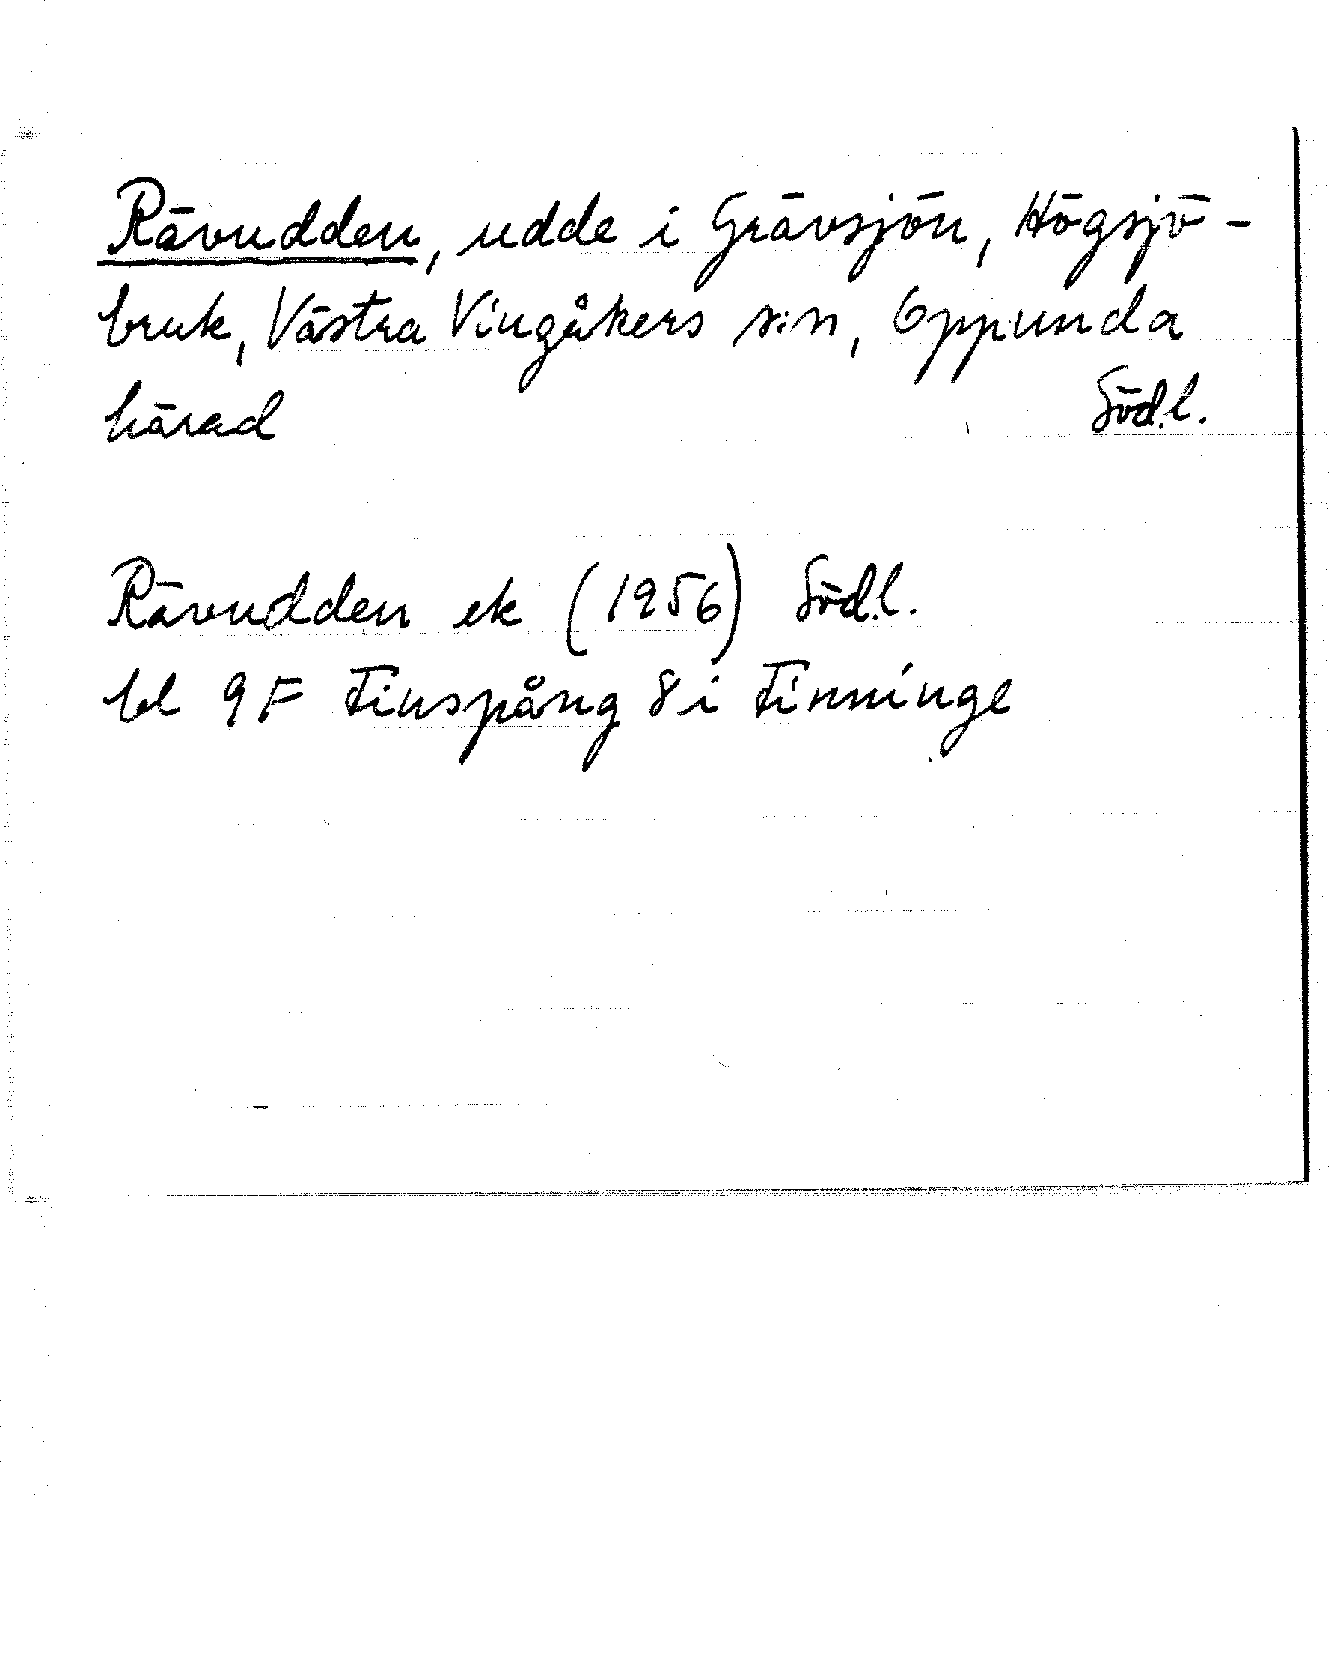 Rävudden, udde i Grävsjön, Högsjö-
bruk, Västra Vingåkers s:n, Oppunda
härad Södl.
Rävudden ek (1956) Södl.
bl 9F Finspång 8i Finninge